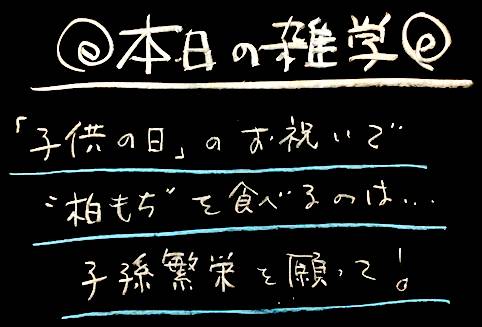 @本日の雑学@
「子供の日」のお祝いで
"柏もち"を食べるのは...
子孫繁栄を願って!